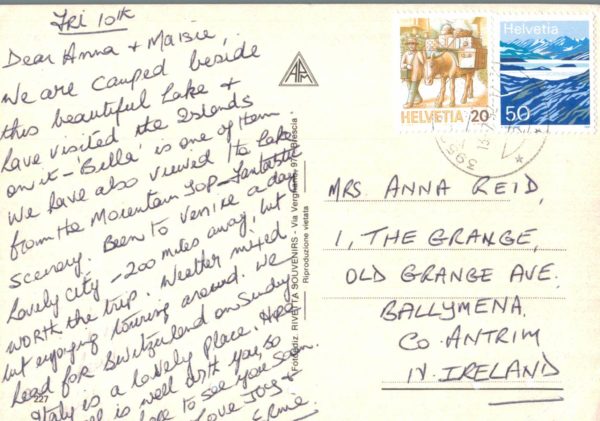 Fri 10th
Dear Anna & Maisie,
We are camped beside
this beautiful Lake &
have visited the Islands
on it - 'Bella' is one of them
We have also viewed the Lake
from the Mountain Top - Fantastic
Scenery. Been to Venice a day
Lovely City - 200 miles away, but
worth the trip. Weather mixed
but enjoying touring around. We
head for Switzerland on Sunday
Italy is a lovely place. Hope
all is well with you, so
hope to see you soon.
Love Joy &
Ernie
227
Fotoediz. RIVETTA SOUVENIRS - Via Verghera, 97 Brescia
Riproduzione vietata
HELVETIA 20
Helvetia
50
MRS ANNA REID,
1, THE GRANGE,
OLD GRANGE AVE.
BALLYMENA,
CO ANTRIM
N. IRELAND